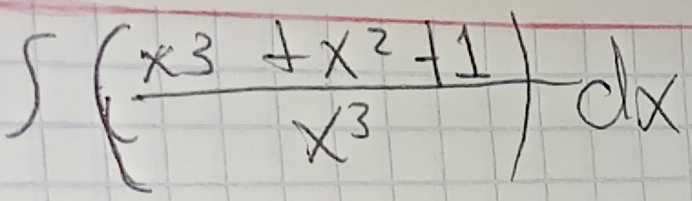 ∫ (x³ + x² + 1 / x³) dx